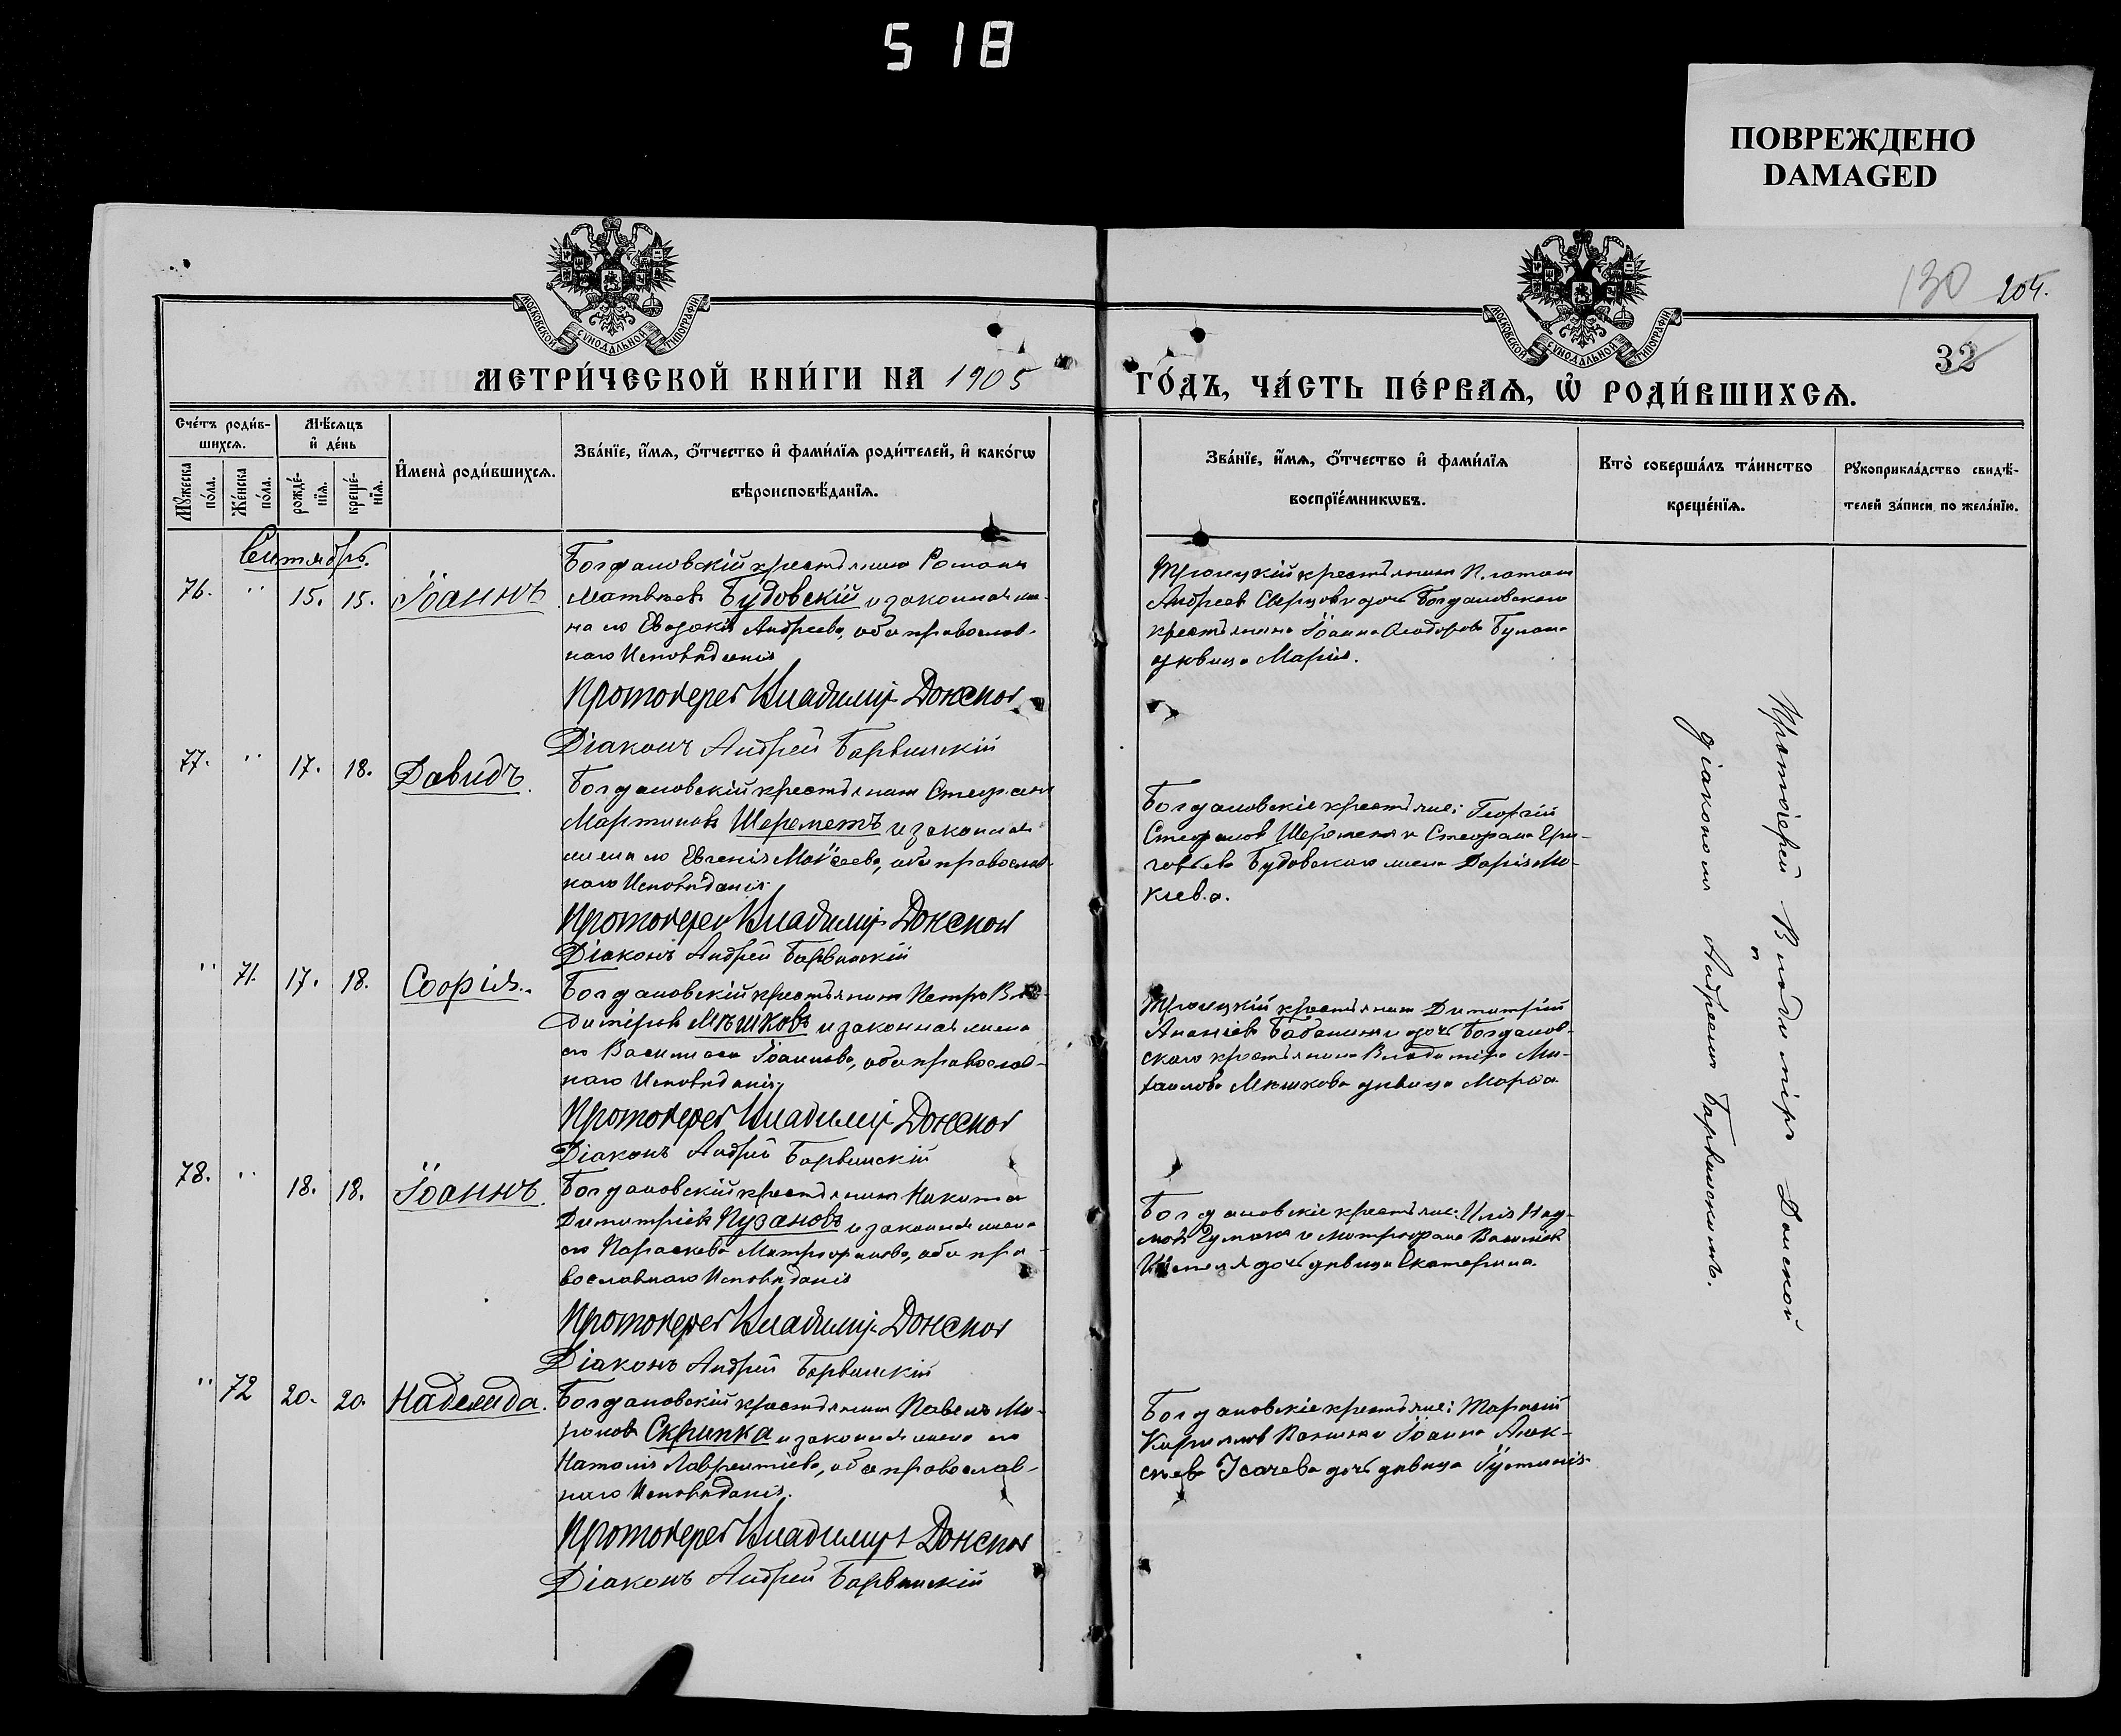 518
ПОВРЕЖДЕНО
DAMAGED
МОСКОВСКОЙ СѴНОДАЛЬНОЙ ТИПОГРАФІИ
МОСКОВСКОЙ СѴНОДАЛЬНОЙ ТИПОГРАФІИ
130 204.
32
МЕТРИ́ЧЕСКОЙ КНИ́ГИ НА 1905
ГО́ДЪ, ЧА́СТЬ ПЕ́РВАѦ, Ѡ҆ РОДИ́ВШИХСѦ.
Сче́тъ роди́в-
шихсѧ.
Мѣ́сѧцъ
и҆ де́нь
Мꙋ́жеска по́ла.
Же́нска по́ла.
рожде́-
нїѧ.
креще́-
нїѧ.
И҆мена̀ роди́вшихсѧ.
Зва́нїе, и҆́мѧ, ѻ҆́тчество и҆ фами́лїѧ роди́телей, и҆ како́гѡ
вѣроисповѣ́данїѧ.
Зва́нїе, и҆́мѧ, ѻ҆́тчество и҆ фами́лїѧ
воспрїе́мникѡвъ.
Кто̀ соверша́лъ та́инство
креще́нїѧ.
Рꙋкоприкла́дство свидѣ́-
телей за́писи по жела́нїю.
Сентябрь.
76. " 15. 15. Іоаннъ
Богдановскій крестьянинъ Романъ
Матвѣевъ Будовскій и законная же-
на его Евдокія Андреева, оба православ-
наго Исповѣданія
Протоіерей Владиміръ Донской
Діаконъ Андрей Барвинскій
Троицкій крестьянинъ Платонъ
Андреевъ и дочь Богдановскаго
крестьянина Іоанна Ѳеодорова
дѣвица Марія.
77. " 17. 18. Давидъ.
Богдановскій крестьянинъ Стефанъ
Мартиновъ Шереметъ и законная
жена его Евгенія Моѵсеева, оба православ-
наго Исповѣданія.
Протоіерей Владиміръ Донской
Діаконъ Андрей Барвинскій
Богдановскіе крестьяне: Георгій
Стефановъ Шереметъ и Стефана Гри-
горьева Будовскаго жена Дарія Мо-
кіева.
" 71. 17. 18. Софія.
Богдановскій крестьянинъ Петръ Вла-
диміровъ Мѣшковъ и законная жена
его Василисса Іоаннова, оба православ-
наго Исповѣданія,
Протоіерей Владиміръ Донской
Діаконъ Андрей Барвинскій
Троицкій крестьянинъ Димитрій
Ананіевъ и дочь Богданов-
скаго крестьянина Владиміра Ми-
хаилова Мѣшкова дѣвица Марѳа
78. " 18. 18. Іоаннъ.
Богдановскій крестьянинъ Никита
Димитріевъ Пузановъ и законная жена
его Параскева Митрофанова, оба пра-
вославнаго Исповѣданія
Протоіерей Владиміръ Донской
Діаконъ Андрей Барвинскій
Богдановскіе крестьяне: Илія
Чумакъ и Митрофана Василіева
дочь дѣвица Екатерина.
" 72 20. 20. Надежда.
Богдановскій крестьянинъ Павелъ Ми-
роновъ Скрипка и законная жена его
Наталія Лаврентіева, оба православ-
наго Исповѣданія.
Протоіерей Владиміръ Донской
Діаконъ Андрей Барвинскій
Богдановскіе крестьяне: Тарасій
Кирилловъ и Іоанна Алек-
сѣева Усачева дочь дѣвица Іустинія.
Протоіерей Владиміръ Донской
съ діакономъ Андреемъ Барвинскимъ.